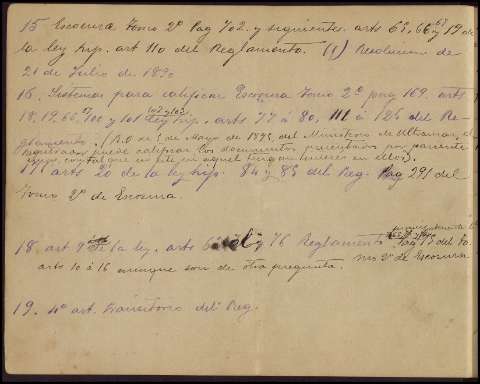 15 Escosura Tomo 2º Pag 702. y siguientes. arts 65, 66 y 19 de
la ley hip. art 110 del Reglamento. (1) Resolucion de
21 de Julio de 1890
16. Sistemas para calificar Escosura Tomo 2º pag 169. arts
18, 19, 66, 100 y 101 ley hip. arts 77 á 80, 111 á 126 del Re-
glamento. (R.O. de de Mayo de 1895, del Ministerio de Ultramar, el
registrador puede calificar los documentos presentados por pariente
suyo, con tal que no en aquel tenga interes en ellos).
17 arts 20 de la ley hip. 84 y 85 del Reg. Pag 291 del
Tomo 2º de Escosura.
18 art 9º de la ley. arts y 76 Reglamento Pag 15 del To-
mo 2º de Escosura
arts 10 á 16 aunque son de otra pregunta.
19. 4º art. transitorio del Reg.